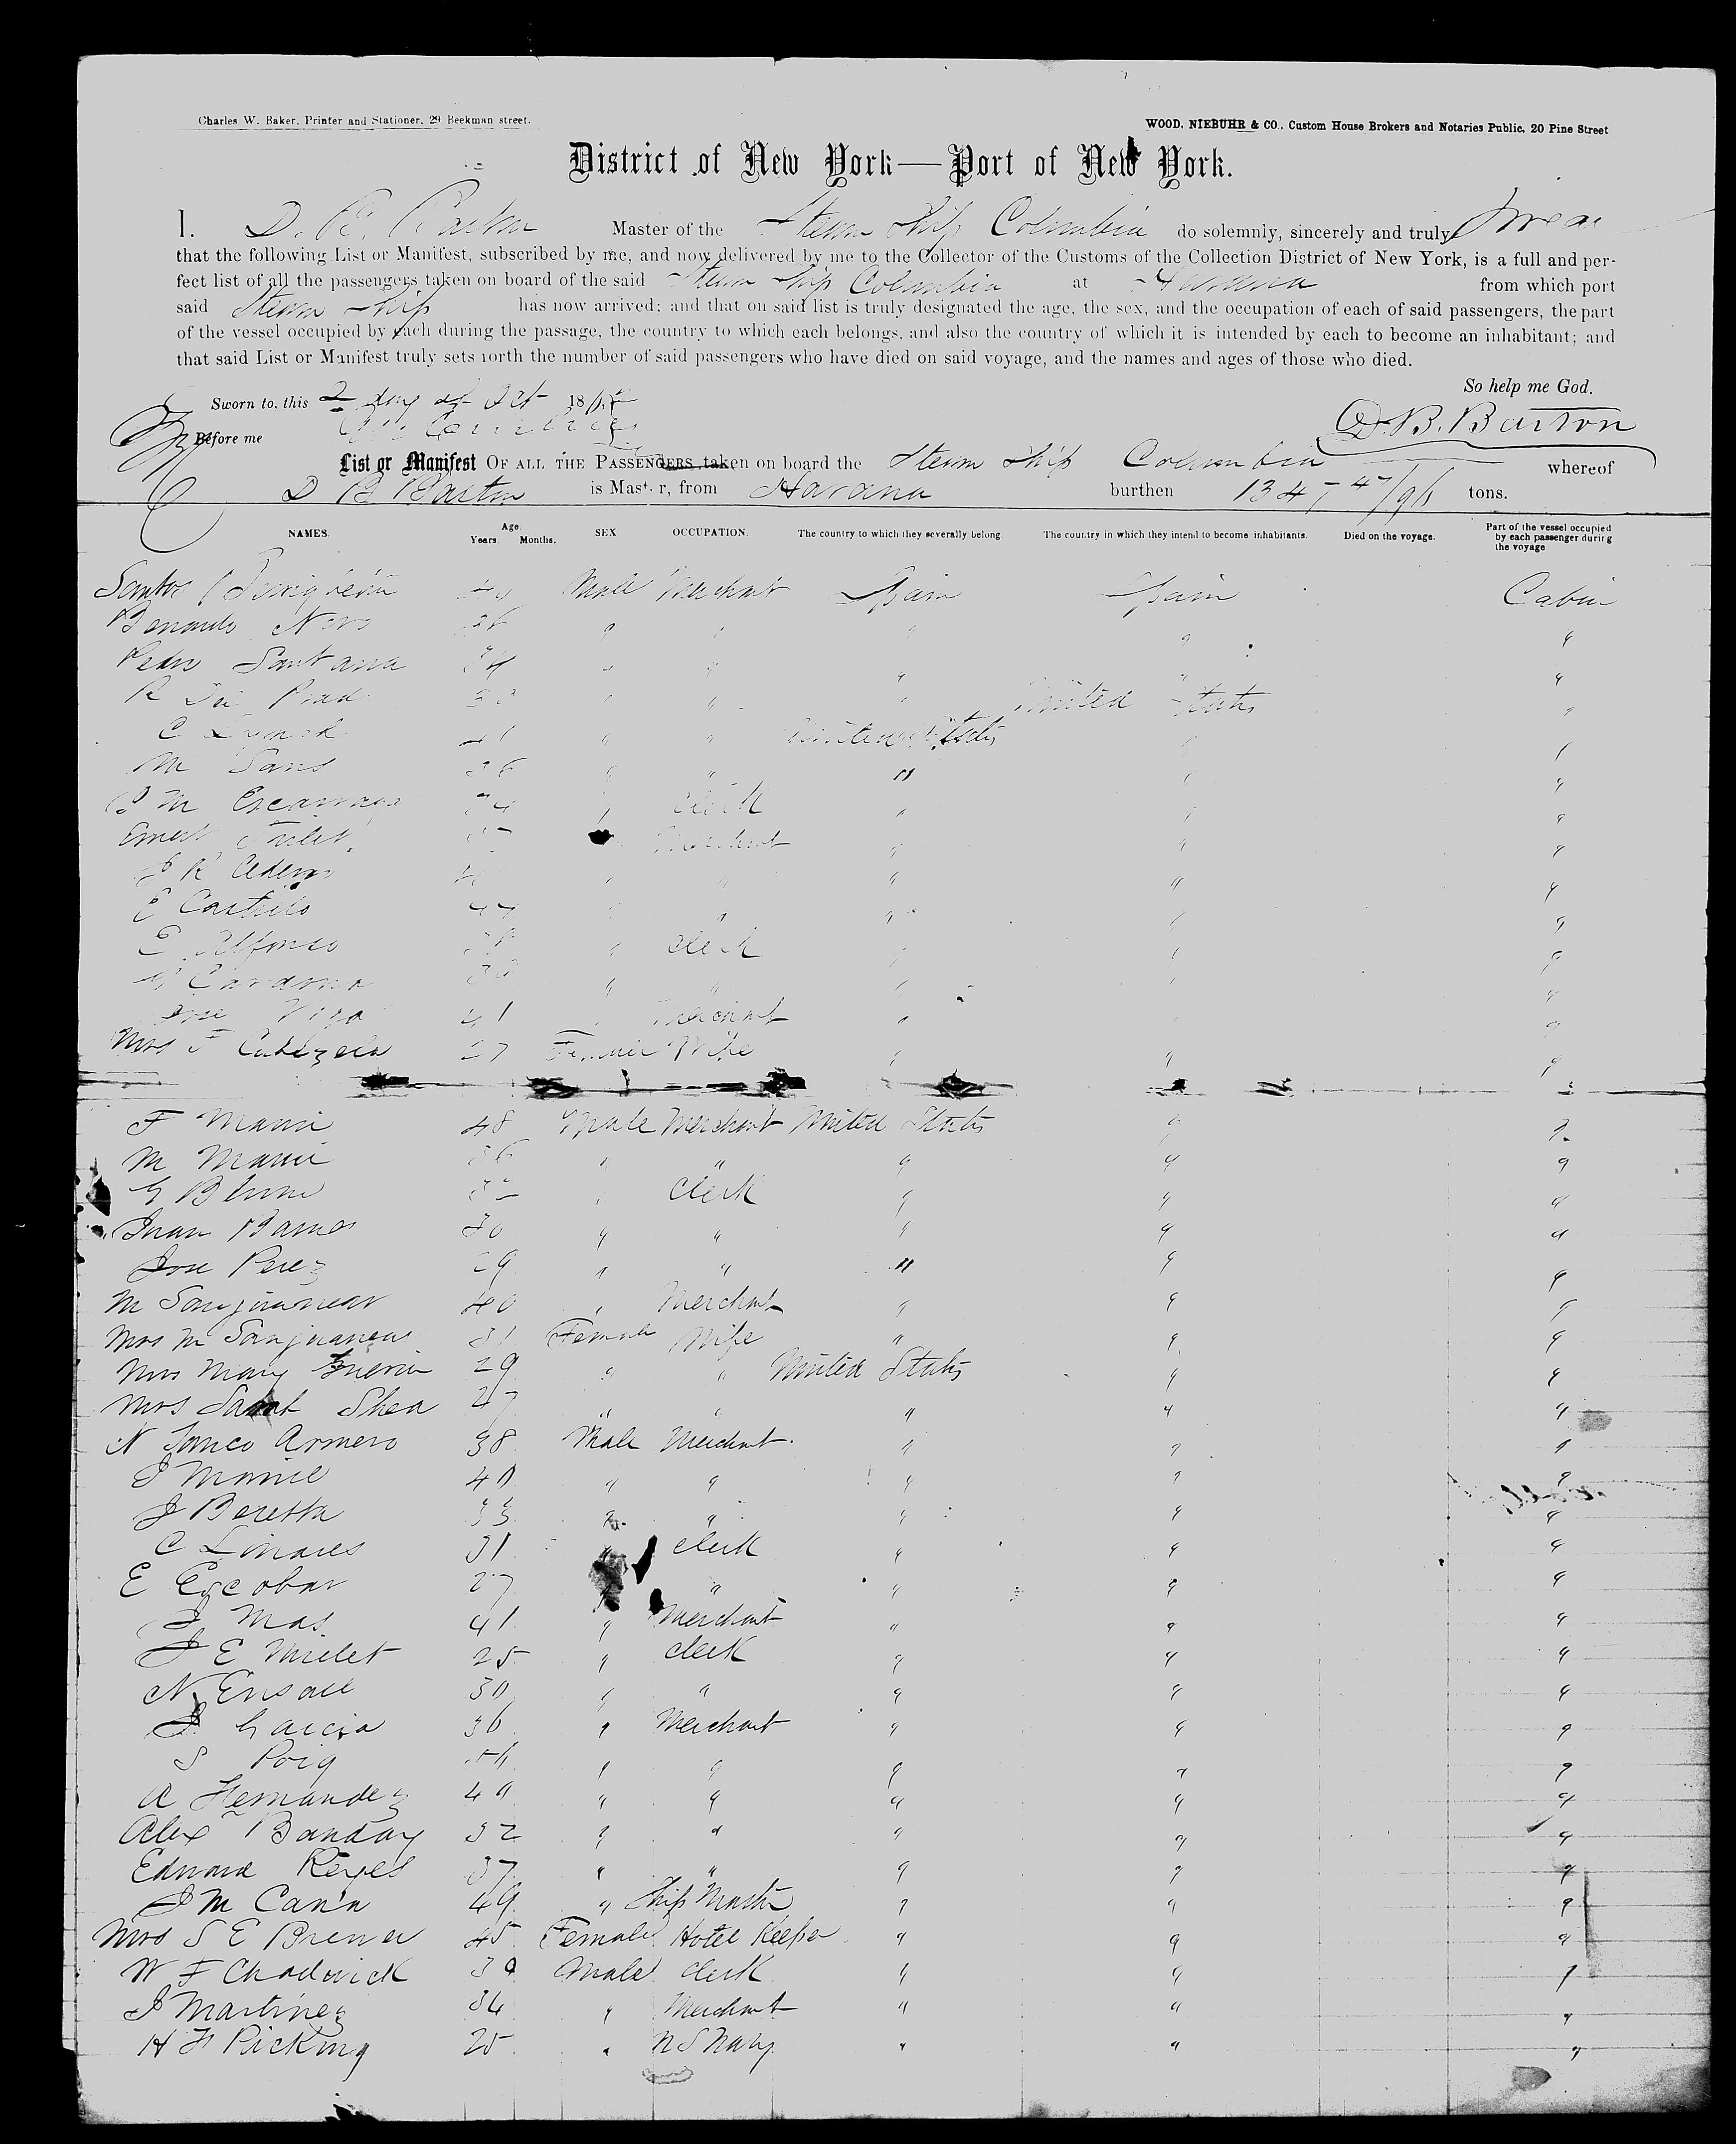 Charles W. Baker, Printer and Stationer, 29 Beekman street.
WOOD, NIEBUHR & CO., Custom House Brokers and Notaries Public, 20 Pine Street
District of New York—Port of New York.
I. D. B. Barton Master of the Steam Ship Columbia do solemnly, sincerely and truly swear
that the following List or Manifest, subscribed by me, and now delivered by me to the Collector of the Customs of the Collection District of New York, is a full and per-
fect list of all the passengers taken on board of the said Steam Ship Columbia at Havana from which port
said Steam Ship has now arrived; and that on said list is truly designated the age, the sex, and the occupation of each of said passengers, the part
of the vessel occupied by each during the passage, the country to which each belongs, and also the country of which it is intended by each to become an inhabitant; and
that said List or Manifest truly sets forth the number of said passengers who have died on said voyage, and the names and ages of those who died.
So help me God.
Sworn to, this 2 day of Oct 186
D. B. Barton
Before me
List or Manifest OF ALL THE PASSENGERS taken on board the Steam Ship Columbia whereof
D B Barton is Master, from Havana burthen 1347 47/95 tons.
NAMES. Age. Years. Months. SEX OCCUPATION. The country to which they severally belong. The country in which they intend to become inhabitants. Died on the voyage. Part of the vessel occupied by each passenger during the voyage
Santos 40 Male Merchant Spain Spain Cabin
" " " " "
Pedro Santana 34 " " " " "
R Del Prad " " " United States "
C Lynch " " United States " "
M Sans 36 " " " " "
M " Clerk " " "
Ernest Merchant " " "
J R " " " " "
E Castillo 44 " " " " "
E Alfonso " Clerk " " "
Cardona 36 " " " " "
Jose Vigo 41 " Merchant " " "
Mrs F 27 Female Wife " " "
F Marin 48 Male Merchant United States " "
M Marin 36 " " " " "
G Blume " Clerk " " "
Juan 30 " " " " "
Jose Perez 29 " " " " "
M 40 " Merchant " " "
Mrs M 31 Female Wife " " "
Mrs Mary 29 " " United States " "
Mrs Shea 27 " " " " "
N Tanco Armero 38 Male Merchant " " "
J 40 " " " " "
J Beretta 33 " " " " "
C Linares 31 " Clerk " " "
E Escobar 27 " " " " "
J Mas 41 " Merchant " " "
J E Mielet 25 " Clerk " " "
N 30 " " " " "
J Garcia 36 " Merchant " " "
S Poig " " " " "
A Hernandez 49 " " " " "
Alex Banday 32 " " " " "
Edward Reyes 37 " " " " "
J M Cann 49 " Ship Master " " "
Mrs S E Brewer 45 Female Hotel Keeper " " "
W F Chadwick 39 Male Clerk " " "
J Martinez 34 " Merchant " " "
H F Picking 25 " U S Navy " " "